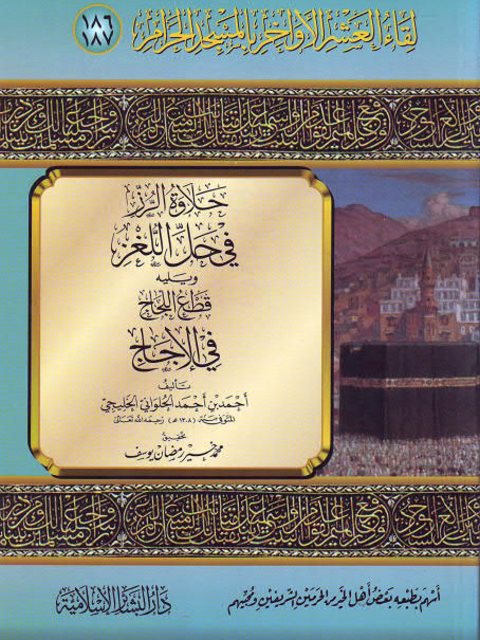 لقاء العشر الأواخر بالمسجد الحرام
١٨٦
١٨٧
حلاوة الرز
في حل اللغز
ويليه
قطع اللجاج
في الأجاج
تأليف
أحمد بن أحمد الحلواني الخليجي
المتوفى سنة (١٣٠٨ هـ) رحمه الله تعالى
تحقيق
محمد خير رمضان يوسف
أسهم بطبعه بعض أهل الخير من الحرمين الشريفين ومحبيهم
دار البشائر الإسلامية